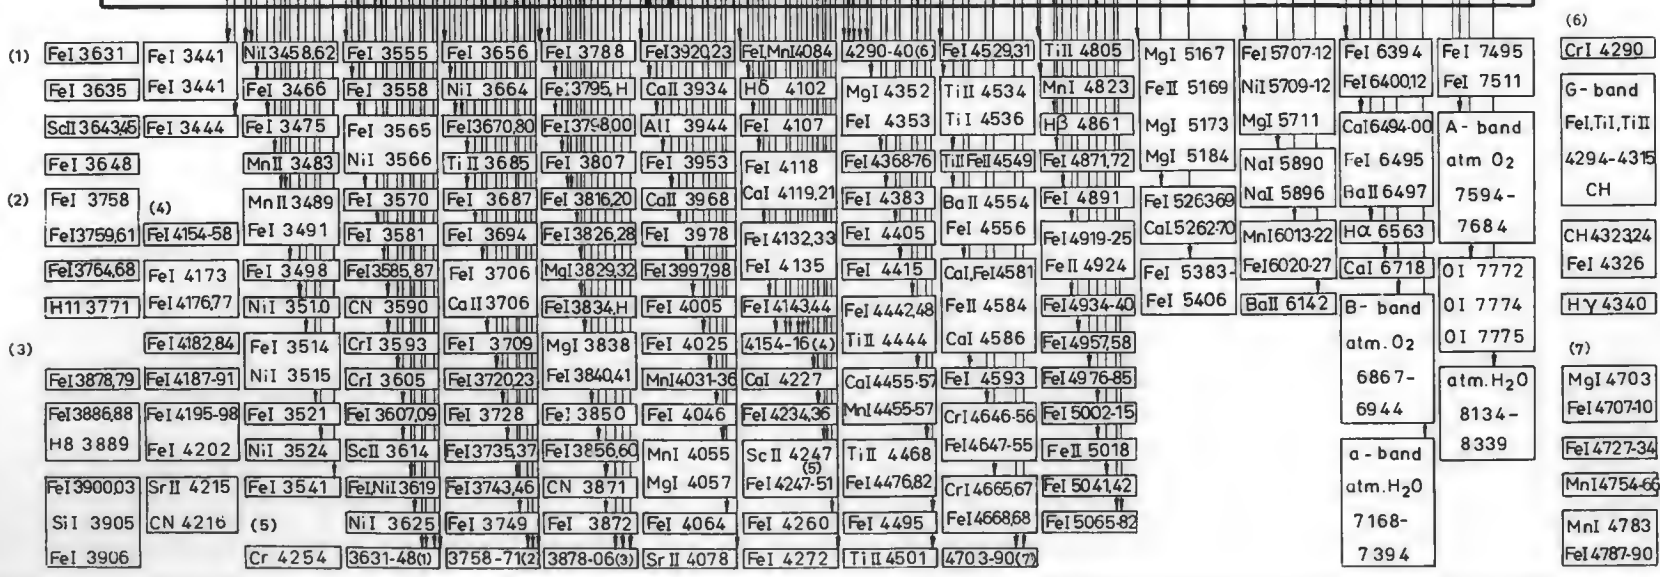 (1)
FeI 3631
FeI 3635
ScII 3643,45
FeI 3648
(2)
FeI 3758
FeI 3759,61
FeI 3764,68
H11 3771
(3)
FeI 3878,79
FeI 3886,88
H8 3889
FeI 3900,03
SiI 3905
FeI 3906
FeI 3441
FeI 3441
FeI 3444
(4)
FeI 4154-58
FeI 4173
FeI 4176,77
FeI 4182,84
FeI 4187-91
FeI 4195-98
FeI 4202
SrII 4215
CN 4216
NiI 3458,62
FeI 3466
FeI 3475
MnII 3483
MnII 3489
FeI 3491
FeI 3498
NiI 3510
FeI 3514
NiI 3515
FeI 3521
NiI 3524
FeI 3541
(5)
Cr 4254
FeI 3555
FeI 3558
FeI 3565
NiI 3566
FeI 3570
FeI 3581
FeI 3585,87
CN 3590
CrI 3593
CrI 3605
FeI 3607,09
ScII 3614
FeI,NiI 3619
NiI 3625
3631-48(1)
FeI 3656
NiI 3664
FeI 3670,80
TiII 3685
FeI 3687
FeI 3694
FeI 3706
CaII 3706
FeI 3709
FeI 3720,23
FeI 3728
FeI 3735,37
FeI 3743,46
FeI 3749
3758-71(2)
FeI 3788
FeI 3795, H
FeI 3798,00
FeI 3807
FeI 3816,20
FeI 3826,28
MgI 3829,32
FeI 3834,H
MgI 3838
FeI 3840,41
FeI 3850
FeI 3856,60
CN 3871
FeI 3872
3878-06(3)
FeI 3920,23
CaII 3934
AlI 3944
FeI 3953
CaII 3968
FeI 3978
FeI 3997,98
FeI 4005
FeI 4025
MnI 4031-36
FeI 4046
MnI 4055
MgI 4057
FeI 4064
SrII 4078
FeI,MnI 4084
Hδ 4102
FeI 4107
FeI 4118
CaI 4119,21
FeI 4132,33
FeI 4135
FeI 4143,44
4154-16(4)
CaI 4227
FeI 4234,36
ScII 4247
(5)
FeI 4247-51
FeI 4260
FeI 4272
4290-40(6)
MgI 4352
FeI 4353
FeI 4368-76
FeI 4383
FeI 4405
FeI 4415
FeI 4442,48
TiII 4444
CaI 4455-57
MnI 4455-57
TiII 4468
FeI 4476,82
FeI 4495
TiII 4501
FeI 4529,31
TiII 4534
TiI 4536
TiII FeII 4549
BaII 4554
FeI 4556
CaI,FeI 4581
FeII 4584
CaI 4586
FeI 4593
CrI 4646-56
FeI 4647-55
CrI 4665,67
FeI 4668,68
4703-90(7)
TiII 4805
MnI 4823
Hβ 4861
FeI 4871,72
FeI 4891
FeI 4919-25
FeII 4924
FeI 4934-40
FeI 4957,58
FeI 4976-85
FeI 5002-15
FeII 5018
FeI 5041,42
FeI 5065-82
MgI 5167
FeII 5169
MgI 5173
MgI 5184
FeI 5263-69
CaI 5262-70
FeI 5383-
FeI 5406
FeI 5707-12
NiI 5709-12
MgI 5711
NaI 5890
NaI 5896
MnI 6013-22
FeI 6020-27
BaII 6142
FeI 6394
FeI 6400,12
CaI 6494-00
FeI 6495
BaII 6497
Hα 6563
CaI 6718
B- band
atm. O2
6867-
6944
a - band
atm.H2O
7168-
7394
FeI 7495
FeI 7511
A- band
atm O2
7594-
7684
OI 7772
OI 7774
OI 7775
atm.H2O
8134-
8339
(6)
CrI 4290
G- band
FeI,TiI,TiII
4294-4315
CH
CH 4323,24
FeI 4326
Hγ 4340
(7)
MgI 4703
FeI 4707-10
FeI 4727-34
MnI 4754-66
MnI 4783
FeI 4787-90